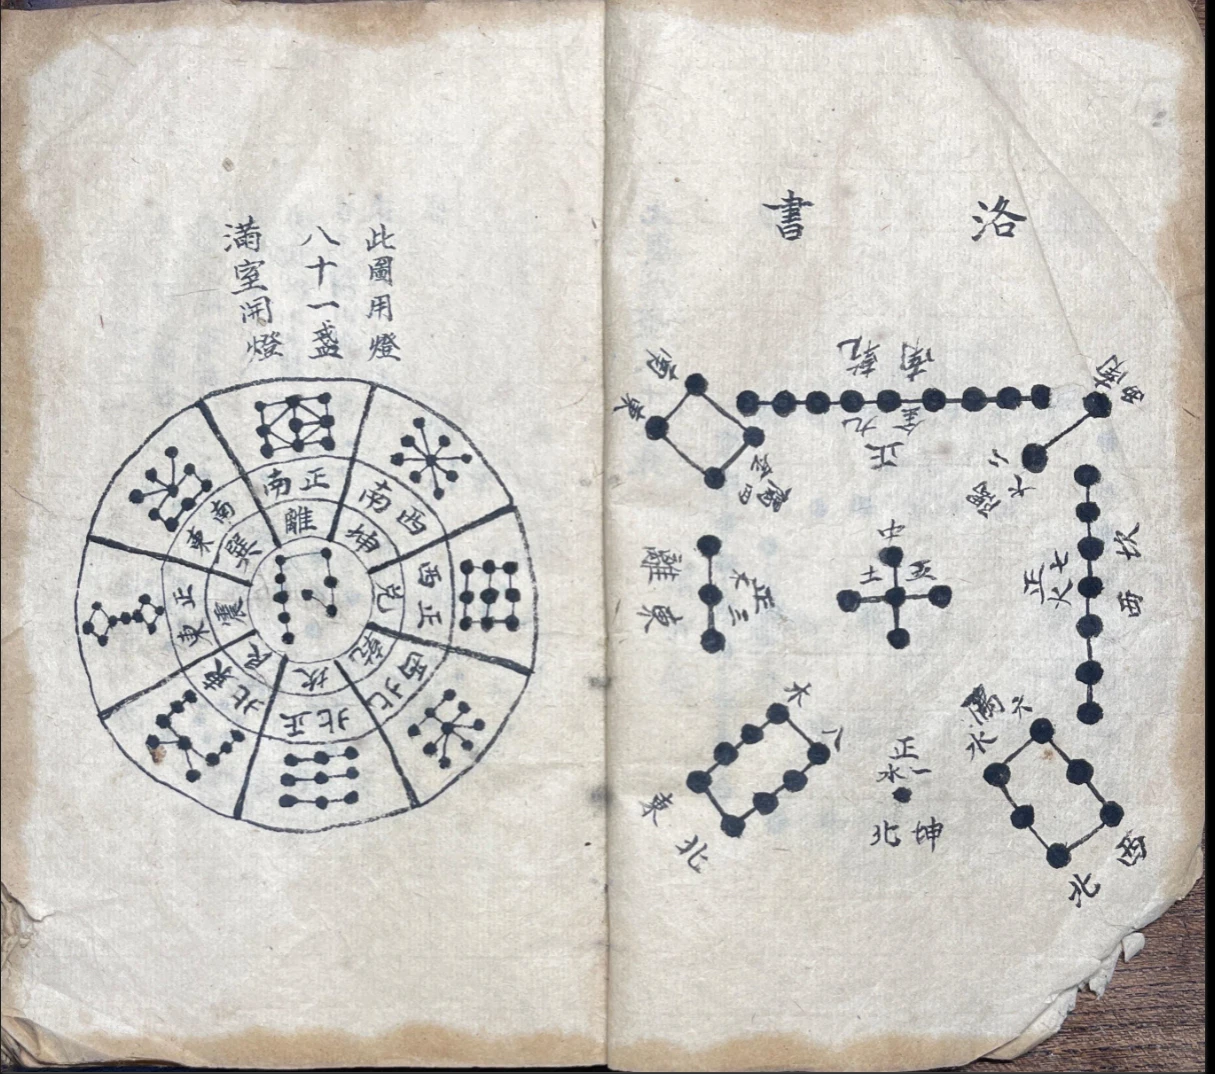 洛書
南乾
正九金
西南
東南
四
中
五土
離東
正三木
坎西
正七火
八木
東北
正水一
北坤
六水
西北
此圖用燈
八十一盞
滿室開燈
正南
離
西南
坤
正西
兌
西北
乾
正北
坎
東北
艮
正東
震
東南
巽